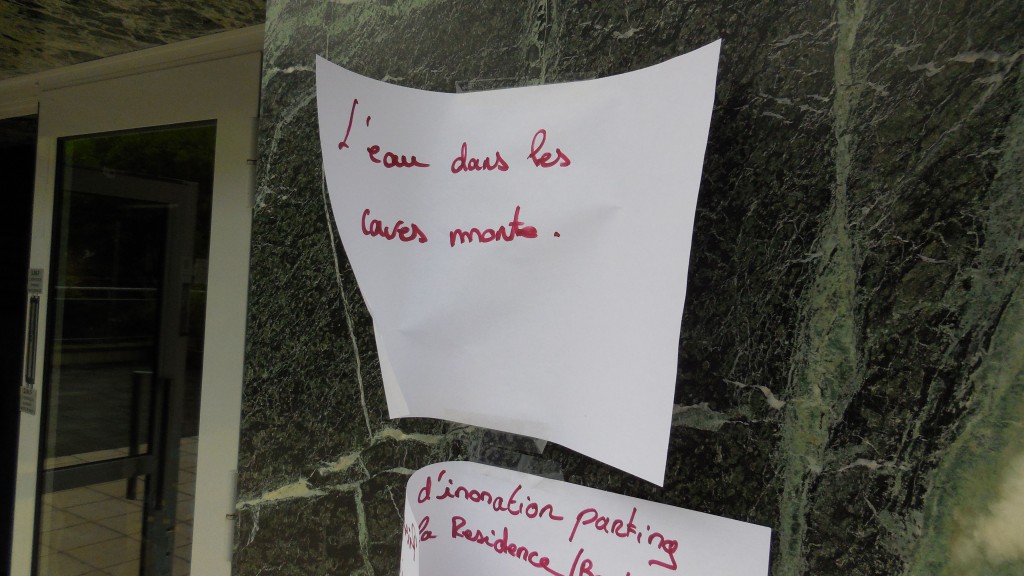 L'eau dans les
caves monte.
d'inonation parking
la Residence